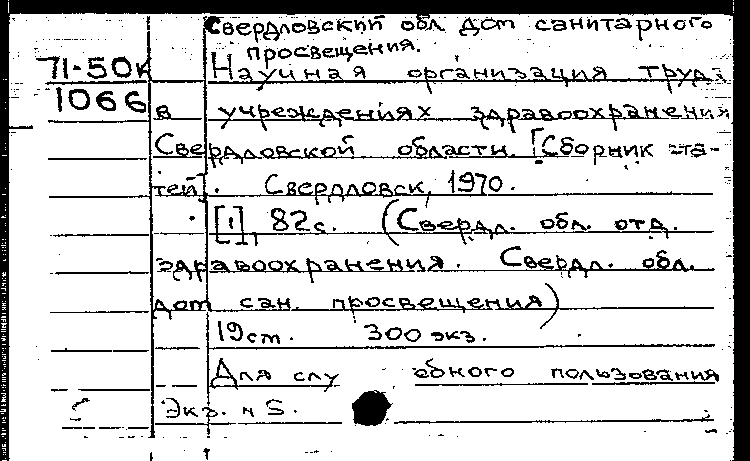 Свердловский обл. дом санитарного
просвещения.
71-50к Научная организация труда
1066 в учреждениях здравоохранения
Свердловской области. [Сборник ста-
тей]. Свердловск, 1970.
[1], 82с. (Свердл. обл. отд.
здравоохранения. Свердл. обл.
дом сан. просвещения)
19см. 300 экз.
Для служебного пользования
Экз. N 5.